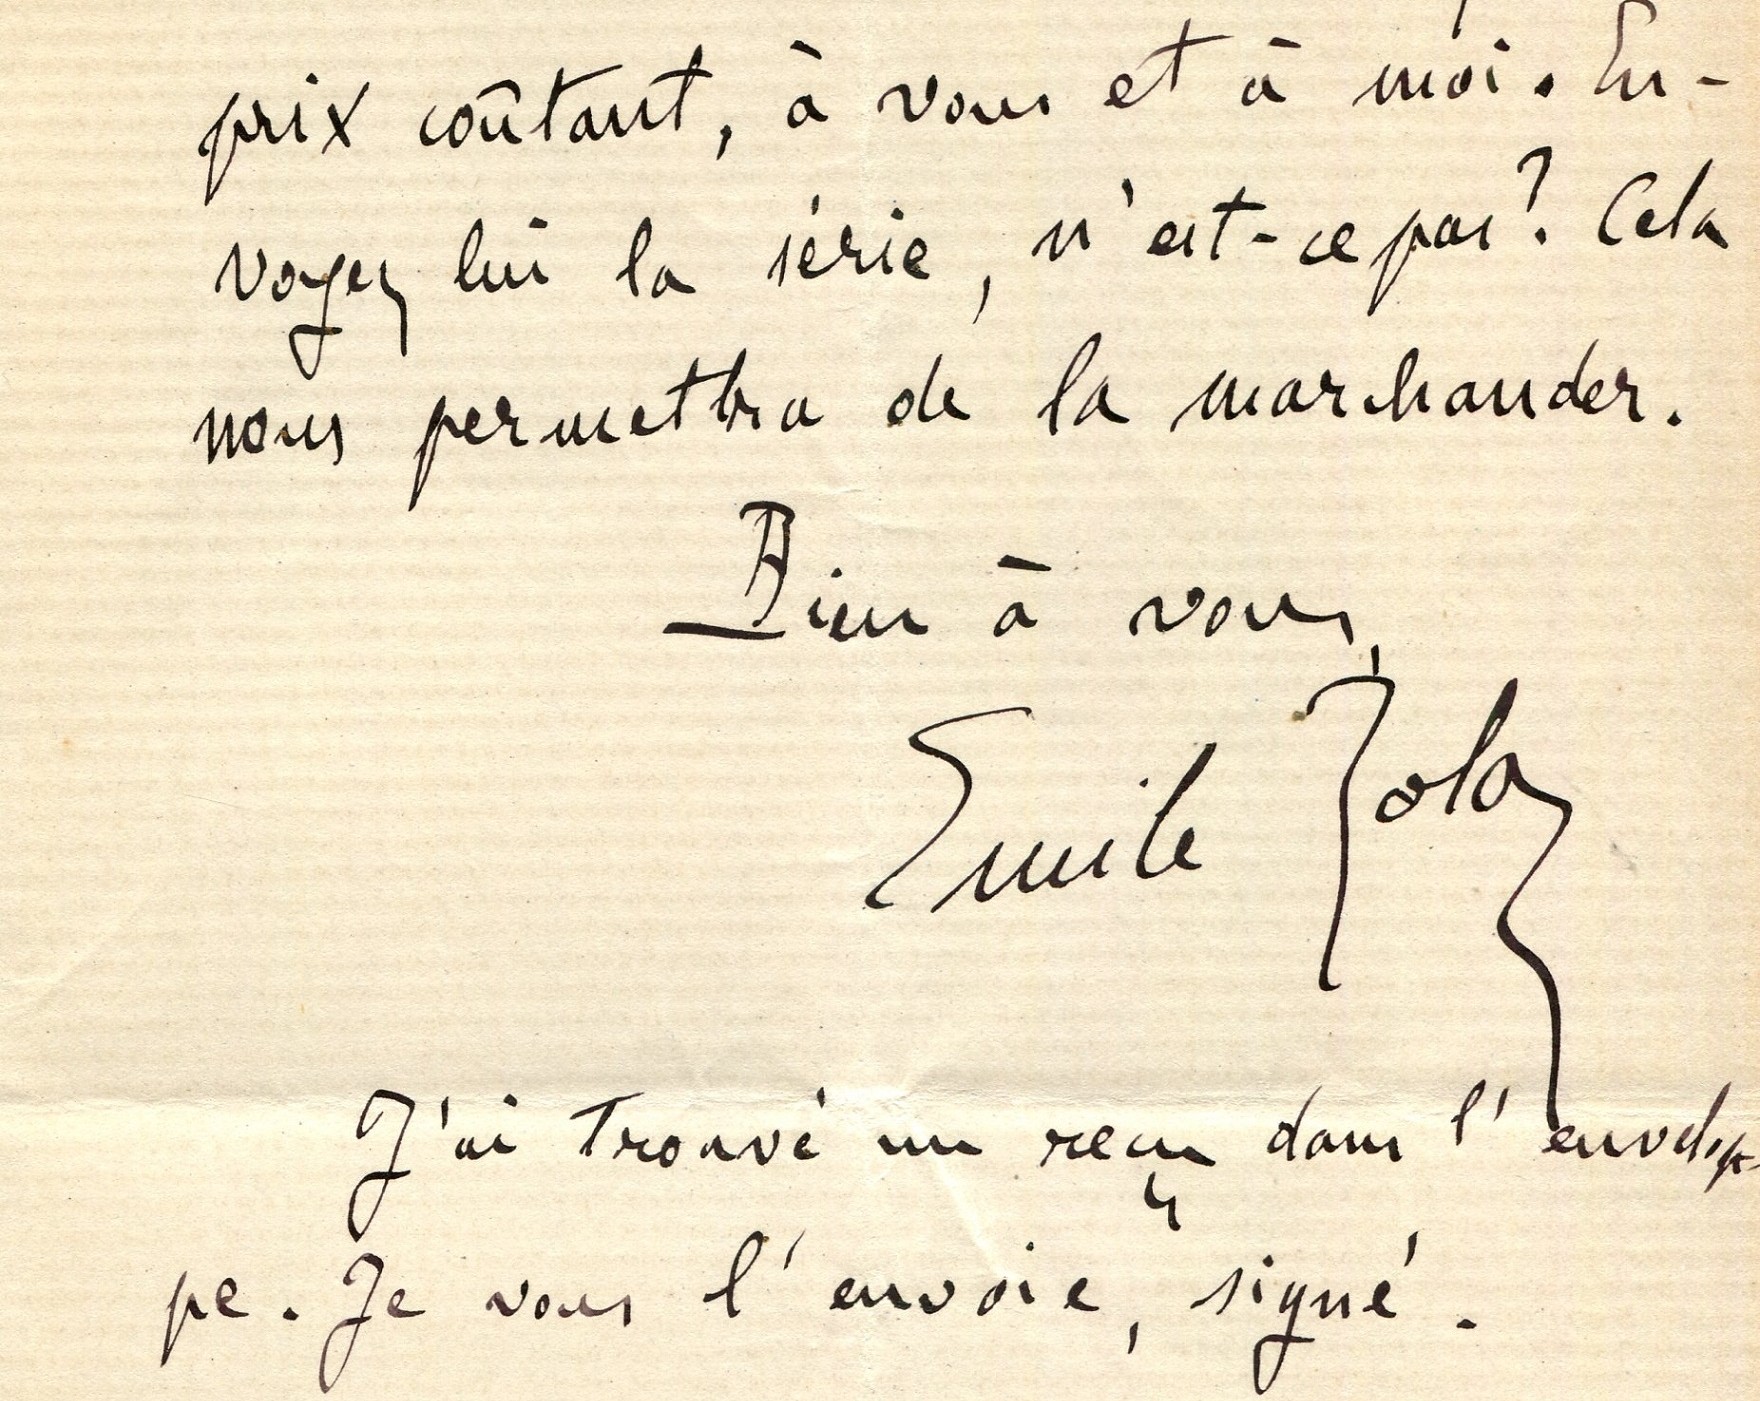 prix coûtant, à vous et à moi. En-
voyez lui la série, n'est-ce pas? Cela
nous permettra de la marchander.
Bien à vous,
Emile Zola
J'ai trouvé un reçu dans l'envelop-
pe. Je vous l'envoie, signé.